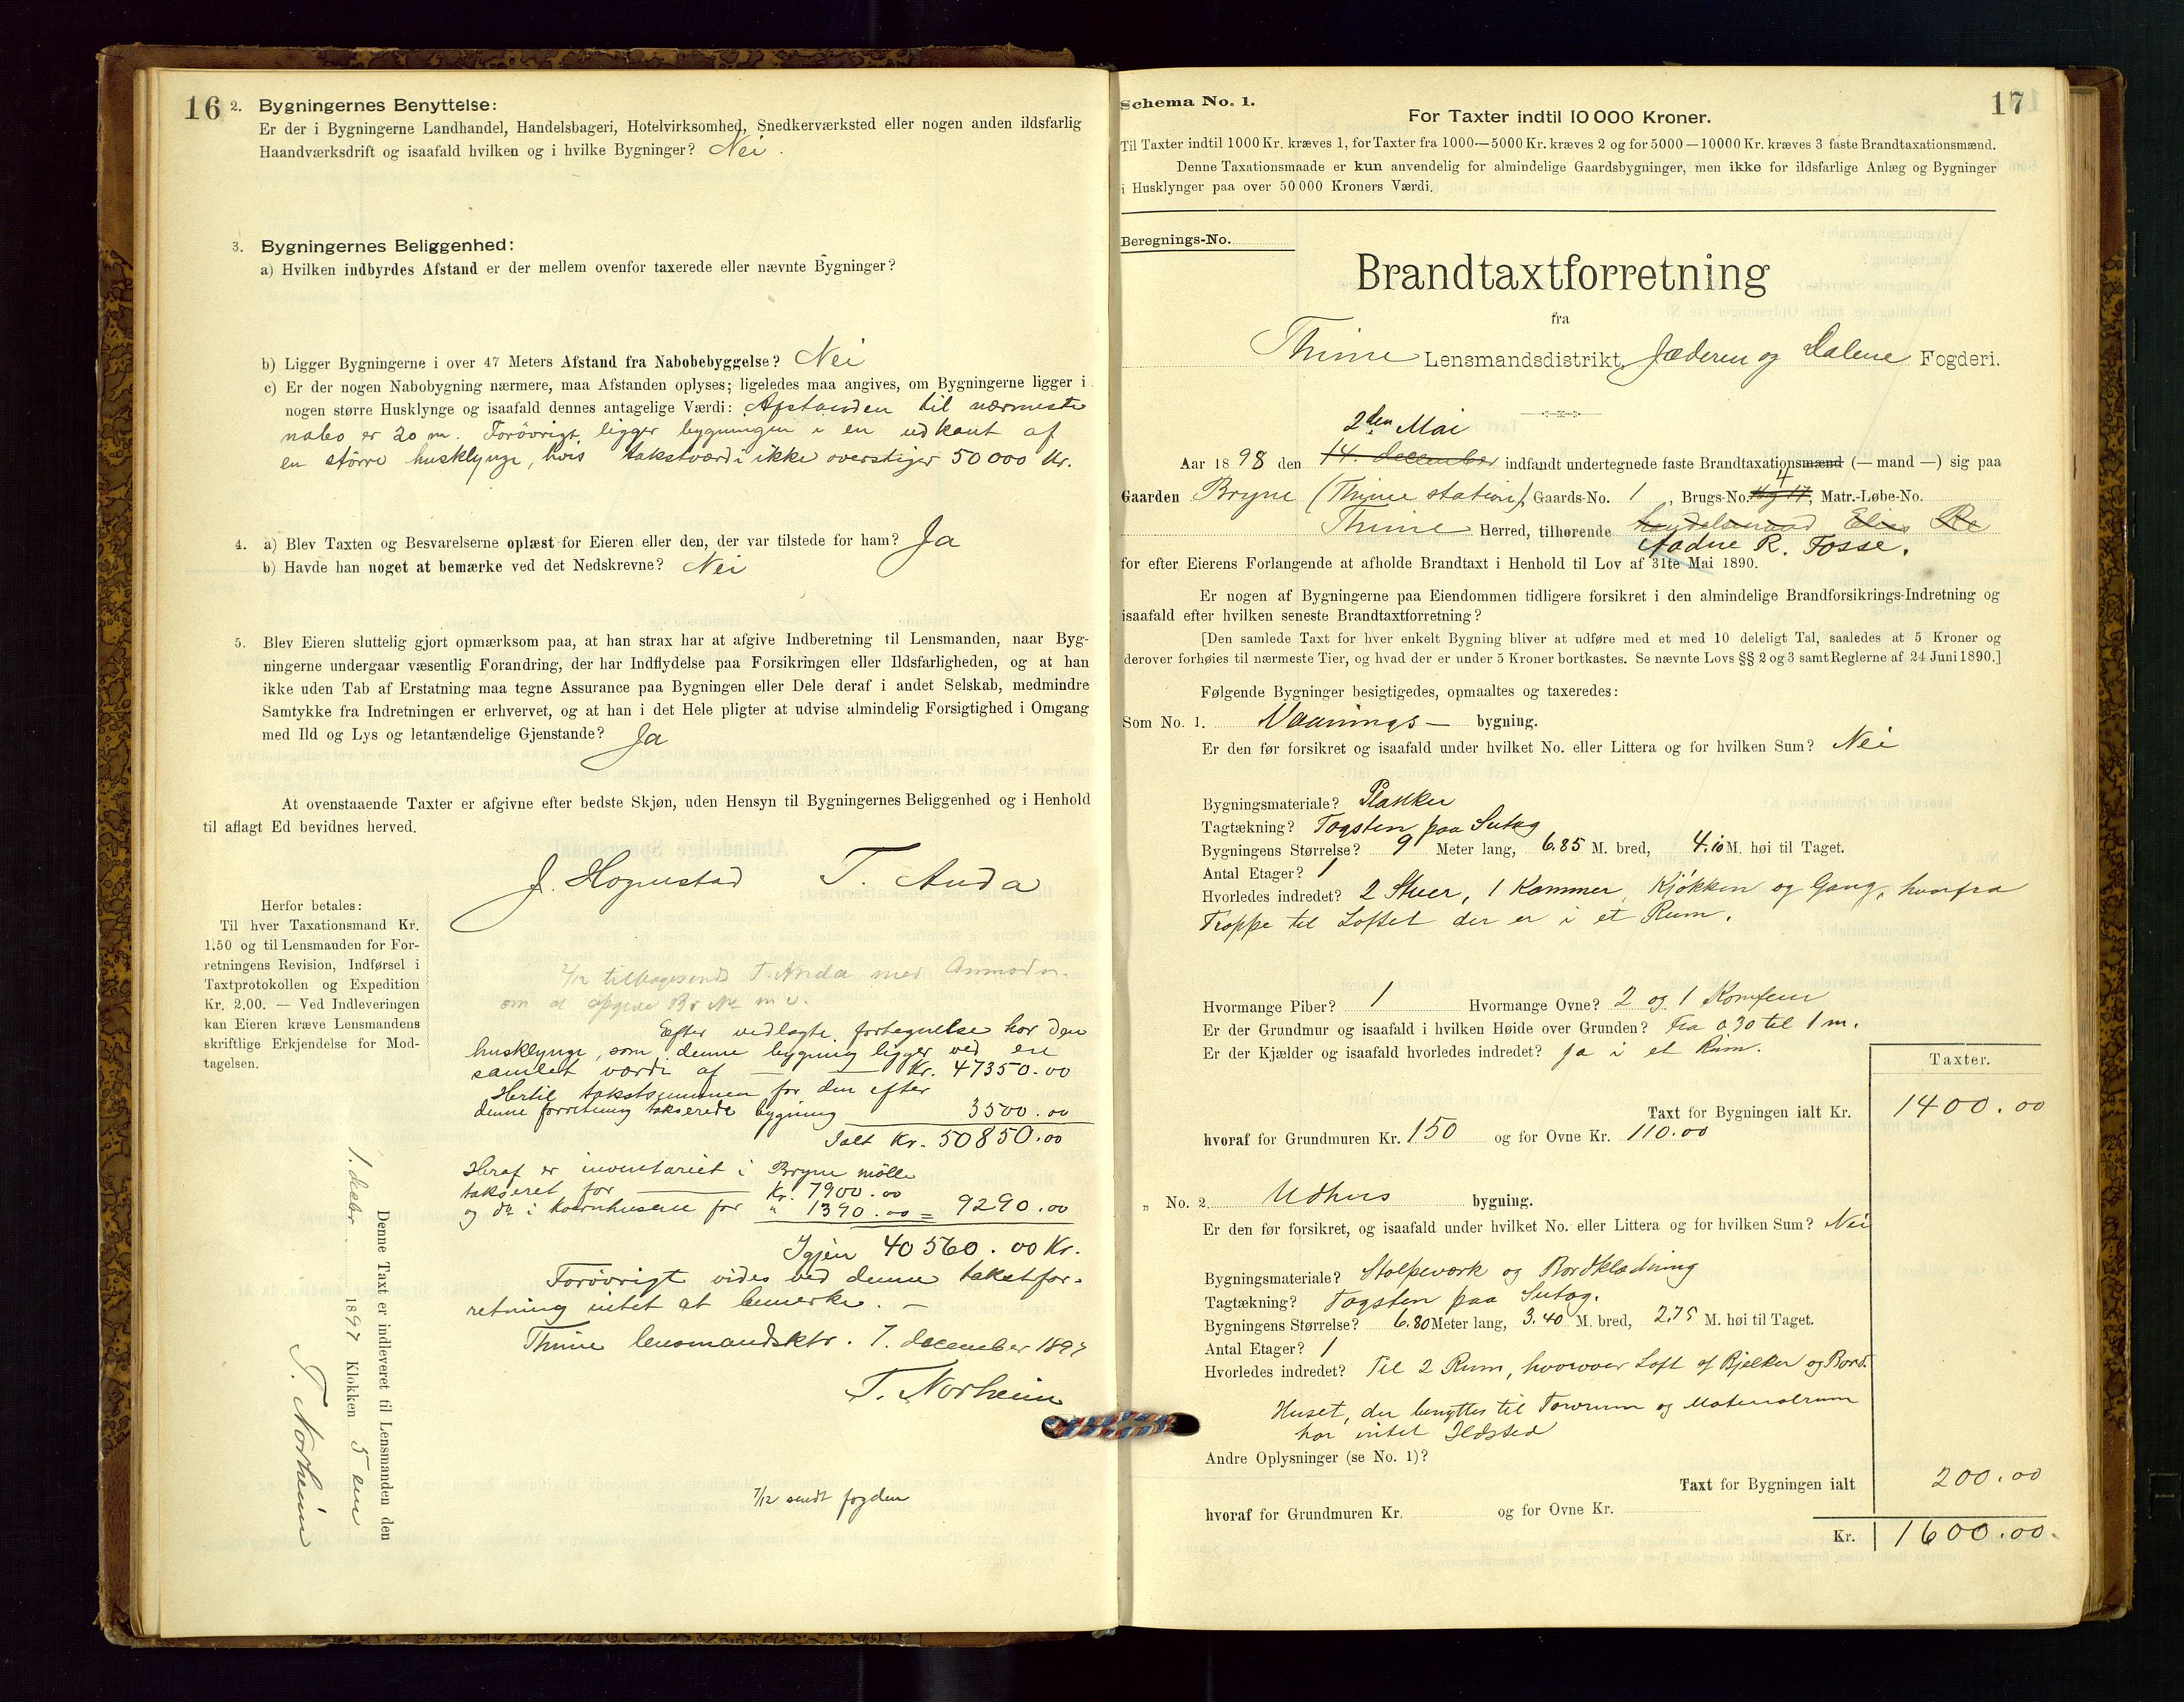 16
2. Bygningernes Benyttelse:
Er der i Bygningerne Landhandel, Handelsbageri, Hotelvirksomhed, Snedkerværksted eller nogen anden ildsfarlig
Haandværksdrift og isaafald hvilken og i hvilke Bygninger? Nei.
3. Bygningernes Beliggenhed:
a) Hvilken indbyrdes Afstand er der mellem ovenfor taxerede eller nævnte Bygninger?
b) Ligger Bygningerne i over 47 Meters Afstand fra Nabobebyggelse? Nei
c) Er der nogen Nabobygning nærmere, maa Afstanden oplyses; ligeledes maa angives, om Bygningerne ligger i
nogen større Husklynge og isaafald dennes antagelige Værdi: Afstanden til nærmeste
nabo er 20 m. Forövrigt ligger bygningen i en udkant af
en större husklynge, hvis takstværdi ikke overstiger 50 000 Kr.
4. a) Blev Taxten og Besvarelserne oplæst for Eieren eller den, der var tilstede for ham? Ja
b) Havde han noget at bemærke ved det Nedskrevne? Nei
5. Blev Eieren sluttelig gjort opmærksom paa, at han strax har at afgive Indberetning til Lensmanden, naar Byg-
ningerne undergaar væsentlig Forandring, der har Indflydelse paa Forsikringen eller Ildsfarligheden, og at han
ikke uden Tab af Erstatning maa tegne Assurance paa Bygningen eller Dele deraf i andet Selskab, medmindre
Samtykke fra Indretningen er erhvervet, og at han i det Hele pligter at udvise almindelig Forsigtighed i Omgang
med Ild og Lys og letantændelige Gjenstande? Ja
At ovenstaaende Taxter er afgivne efter bedste Skjøn, uden Hensyn til Bygningernes Beliggenhed og i Henhold
til aflagt Ed bevidnes herved.
J. Hognestad T. Anda
Herfor betales:
Til hver Taxationsmand Kr.
1.50 og til Lensmanden for For-
retningens Revision, Indførsel i
Taxtprotokollen og Expedition
Kr. 2.00. — Ved Indleveringen
kan Eieren kræve Lensmandens
skriftlige Erkjendelse for Mod-
tagelsen.
2/12 tilbagesendt T. Anda med Anmodn.
om at opgive Br. No m. v.
Efter vedlagte fortegnelse har den
husklynge, som denne bygning ligger ved en
samlet værdi af — — Kr. 47350.00
Hertil takstsummen for den efter
denne forretning takserede bygning 3500.00
Ialt Kr. 50850.00
Heraf er inventariet i Bryne mölle
takseret for — Kr. 7900.00
og do i kornhusene for " 1390.00 = 9290.00
Igjen 40560.00 Kr.
Forövrigt vides ved denne takstfor-
retning intet at bemerke. —
Thime lensmandsktr. 7. december 1897
T. Norheim
7/12 sendt fogden
Denne Taxt er indleveret til Lensmanden den
1. decbr. 1897 Klokken 5 em
T. Norheim
17
Schema No. 1.
For Taxter indtil 10 000 Kroner.
Til Taxter indtil 1000 Kr. kræves 1, for Taxter fra 1000—5000 Kr. kræves 2 og for 5000—10000 Kr. kræves 3 faste Brandtaxationsmænd.
Denne Taxationsmaade er kun anvendelig for almindelige Gaardsbygninger, men ikke for ildsfarlige Anlæg og Bygninger
i Husklynger paa over 50 000 Kroners Værdi.
Beregnings-No.
Brandtaxtforretning
fra
Thime Lensmandsdistrikt, Jæderen og Dalene Fogderi.
2den Mai
Aar 1898 den 14. december indfandt undertegnede faste Brandtaxationsmænd (— mand —) sig paa
4
Gaarden Bryne (Thime station), Gaards-No. 1, Brugs-No. 11 og 17, Matr.-Løbe-No.
Thime Herred, tilhørende handelsmand Elias Re
Aadne R. Fosse.
for efter Eierens Forlangende at afholde Brandtaxt i Henhold til Lov af 31te Mai 1890.
Er nogen af Bygningerne paa Eiendommen tidligere forsikret i den almindelige Brandforsikrings-Indretning og
isaafald efter hvilken seneste Brandtaxtforretning?
[Den samlede Taxt for hver enkelt Bygning bliver at udføre med et med 10 deleligt Tal, saaledes at 5 Kroner og
derover forhøies til nærmeste Tier, og hvad der er under 5 Kroner bortkastes. Se nævnte Lovs §§ 2 og 3 samt Reglerne af 24 Juni 1890.]
Følgende Bygninger besigtigedes, opmaaltes og taxeredes:
Som No. 1. Vaanings— bygning.
Er den før forsikret og isaafald under hvilket No. eller Littera og for hvilken Sum? Nei
Bygningsmateriale? Planker
Tagtækning? Tagsten paa Sutag
Bygningens Størrelse? 9 Meter lang, 6.85 M. bred, 4.10 M. høi til Taget.
Antal Etager? 1
Hvorledes indredet? 2 Stuer, 1 Kammer, Kjøkken og Gang, hvorfra
Trappe til Loftet der er i et Rum.
Hvormange Piber? 1 Hvormange Ovne? 2 og 1 Komfur
Er der Grundmur og isaafald i hvilken Høide over Grunden? Fra 0.30 til 1 m.
Er der Kjælder og isaafald hvorledes indredet? Ja i et Rum.
Taxter.
Taxt for Bygningen ialt Kr. 1400.00
hvoraf for Grundmuren Kr. 150 og for Ovne Kr. 110.00
„ No. 2. Udhus bygning.
Er den før forsikret, og isaafald under hvilket No. eller Littera og for hvilken Sum? Nei
Bygningsmateriale? Stolpeværk og Bordklædning
Tagtækning? Tagsten paa Sutag.
Bygningens Størrelse? 6.80 Meter lang, 3.40 M. bred, 2.75 M. høi til Taget.
Antal Etager? 1
Hvorledes indredet? Til 2 Rum, hvorover Loft af Bjelker og Bord.
Huset, der benyttes til Torvrum og Materialrum
har intet Ildsted
Andre Oplysninger (se No. 1)?
Taxt for Bygningen ialt 200.00
hvoraf for Grundmuren Kr. og for Ovne Kr.
Kr. 1600.00.